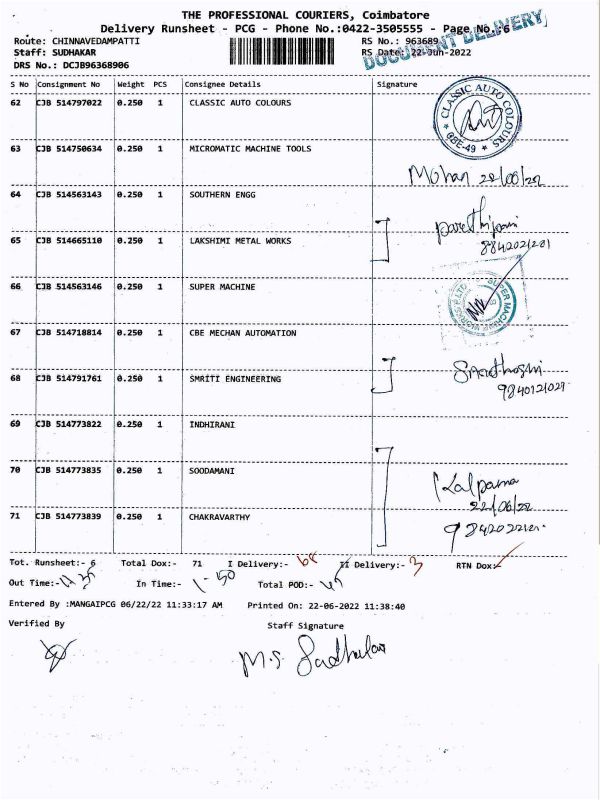 THE PROFESSIONAL COURIERS, Coimbatore
Delivery Runsheet - PCG - Phone No.:0422-3505555 - Page No.:6
Route: CHINNAVEDAMPATTI
RS No.: 963689
Staff: SUDHAKAR
RS Date: 22-Jun-2022
DOCUMENT DELIVERY
DRS No.: DCJB96368906
S No Consignment No Weight PCS Consignee Details Signature
62 CJB 514797022 0.250 1 CLASSIC AUTO COLOURS
CLASSIC AUTO COLOURS
63 CJB 514750634 0.250 1 MICROMATIC MACHINE TOOLS
Mohan 22/06/22
64 CJB 514563143 0.250 1 SOUTHERN ENGG
65 CJB 514665110 0.250 1 LAKSHIMI METAL WORKS
66 CJB 514563146 0.250 1 SUPER MACHINE
67 CJB 514718814 0.250 1 CBE MECHAN AUTOMATION
68 CJB 514791761 0.250 1 SMRITI ENGINEERING
69 CJB 514773822 0.250 1 INDHIRANI
70 CJB 514773835 0.250 1 SOODAMANI
Kalpana
22/06/22
71 CJB 514773839 0.250 1 CHAKRAVARTHY
Tot. Runsheet:- 6 Total Dox:- 71 I Delivery:- 68 II Delivery:- 3 RTN Dox:-
Out Time:- In Time:- 1-50 Total POD:-
Entered By :MANGAIPCG 06/22/22 11:33:17 AM Printed On: 22-06-2022 11:38:40
Verified By Staff Signature
M.S. Sudhakar